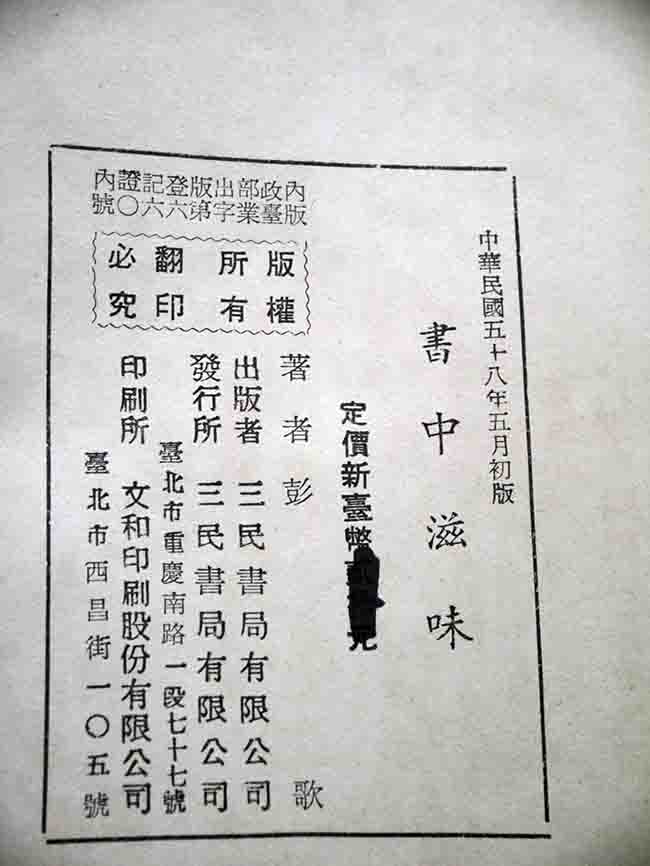 中華民國五十八年五月初版
書中滋味
定價新臺幣元
內政部出版登記證內
版臺業字第六六〇號
版權
所有
翻印
必究
著者彭歌
出版者 三民書局有限公司
發行所 三民書局有限公司
臺北市重慶南路一段七十七號
印刷所 文和印刷股份有限公司
臺北市西昌街一〇五號